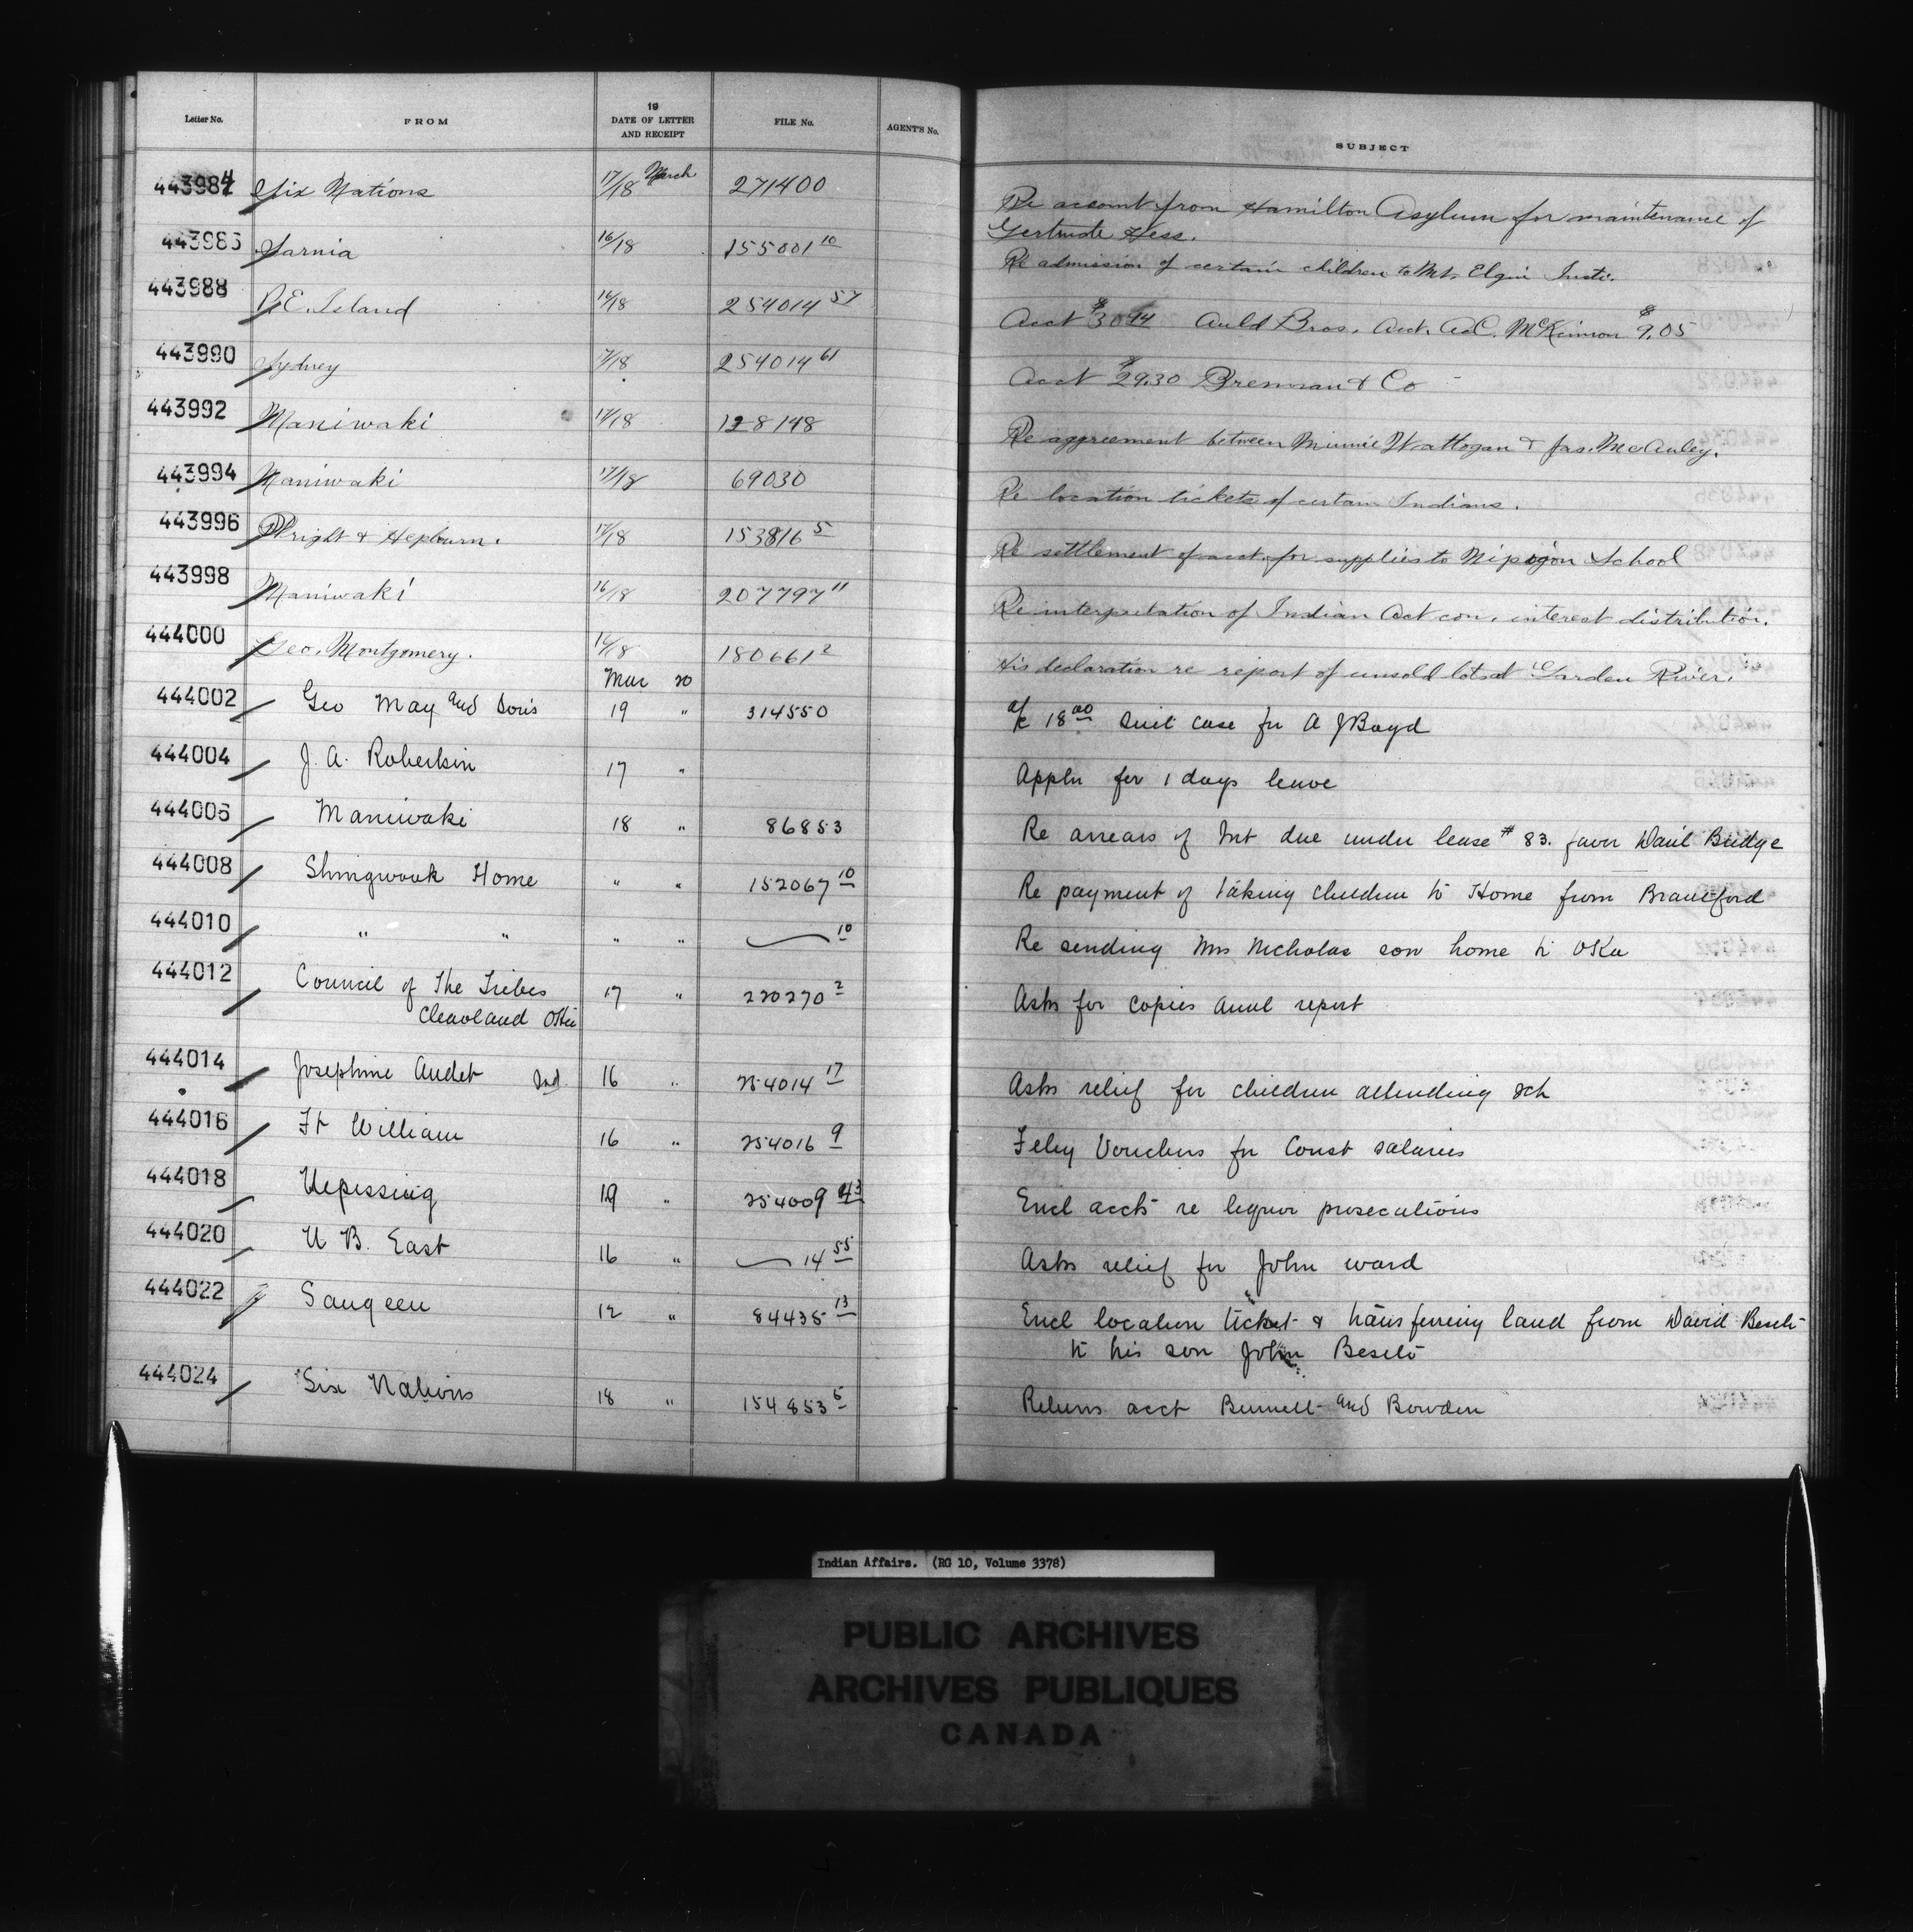 Letter No. FROM 19 DATE OF LETTER AND RECEIPT FILE No. AGENT'S No. SUBJECT
443984 Six Nations 17/18 March 271400 Re account from Hamilton Asylum for maintenance of
Gertrude Hess.
443986 Sarnia 16/18 155001 10 Re admission of certain children to Mt. Elgin Insti.
443988 P.E. Island 16/18 254014 57 Acct $30.94 Auld Bros. Acct. A.C. McKinnon $9.05
443990 Sydney 17/18 254014 61 Acct $29.30 Brennan & Co
443992 Maniwaki 17/18 128148 Re aggreement between Minnie Wattogan & Jas. McAuley.
443994 Maniwaki 17/18 69030 Re location tickets of certain Indians.
443996 Wright & Hepburn. 17/18 153816 5 Re settlement of acct. for supplies to Nipigon School
443998 Maniwaki 16/18 207797 11 Re interpretation of Indian Act con. interest distribution.
444000 Geo. Montgomery. 16/18 180661 2 His declaration re report of unsold lots at Garden River.
Mar 20
444002 Geo May and Sons 19 " 314550 a/c 18 00 Suit case for A J Boyd
444004 J. A. Robertson 17 " Appln for 1 days leave
444006 Maniwaki 18 " 86853 Re arrears of Int due under lease # 83. favor Danl Budge
444008 Shingwauk Home " " 152067 10 Re payment of taking children to Home from Brantford
444010 " " " " 10 Re sending Mrs Nicholas son home to Oka
444012 Council of The Tribes 17 " 220270 2 Asks for copies annl report
Cleaveland Ohio
444014 Josephine Audet Ind. 16 " 254014 17 Asks relief for children attending sch
444016 Ft William 16 " 254016 9 Feby Vouchers for Const salaries
444018 Nipissing 19 " 254009 43 Encl accts re liquor prosecutions
444020 N B. East 16 " 14 55 Asks relief for John ward
444022 Saugeen 12 " 84435 13 Encl location ticket & transferring land from David Besito
to his son John Besito
444024 Six Nations 18 " 154853 6 Returns acct Bunnell and Bowden
Indian Affairs. (RG 10, Volume 3378)
PUBLIC ARCHIVES
ARCHIVES PUBLIQUES
CANADA